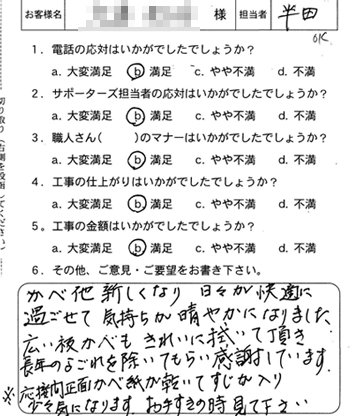 お客様名 様 担当者 半田
OK
1．電話の応対はいかがでしたでしょうか？
a. 大変満足 b 満足 c. やや不満 d. 不満
2．サポーターズ担当者の応対はいかがでしたでしょうか？
a. 大変満足 b 満足 c. やや不満 d. 不満
3．職人さん( )のマナーはいかがでしたでしょうか？
a. 大変満足 b 満足 c. やや不満 d. 不満
4．工事の仕上がりはいかがでしたでしょうか？
a. 大変満足 b 満足 c. やや不満 d. 不満
5．工事の金額はいかがでしたでしょうか？
a. 大変満足 b 満足 c. やや不満 d. 不満
6．その他、ご意見・ご要望をお書き下さい。
かべ他 新しくなり 日々が快適に
過ごせて 気持ちが晴やかになりました
広い板かべも きれいに拭いて頂き
長年のよごれを除いてもらい感謝しています。
※応接間正面かべ紙が乾いてすじか入り
少々気になります。お手すきの時見て下さい